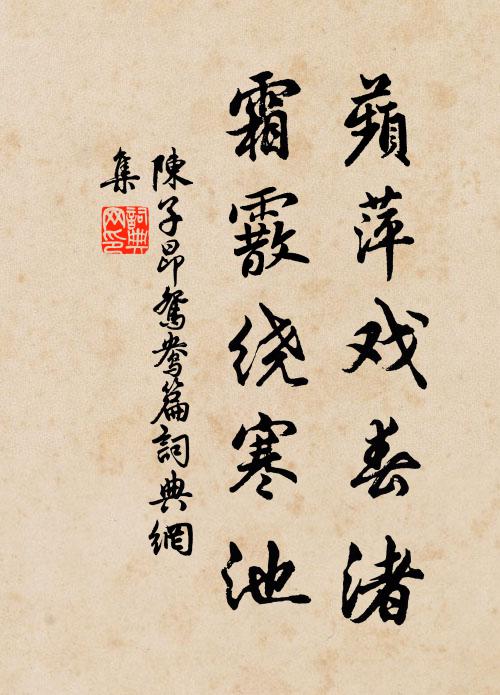 蘋萍戏春渚
霜霰绕寒池
陳子昂鴛鴦篇詞典網
集
詞典
网印